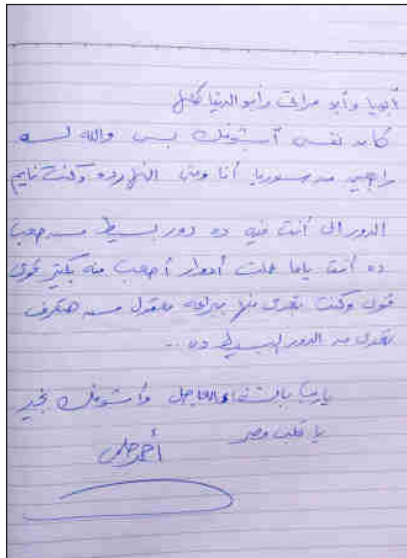 أبويا وأبو مراتي وأبو الدنيا كلها
كان نفسي أشوفك بس والله لسه
راجعين من سوريا أنا ومنى النهارده وكنت نايم
الدور الى أنت فيه ده دور بسيط مش صعب
ده أنت ياما عملت أدوار أصعب منه بكتير قوى
قوى وكنت بتعدى منها ببراعه معقول مش هتعرف
تعدى من الدور البسيط ده ...
يارب بالشفاء العاجل وأشوفك بخير
يا قلب مصر
أحمد حلمى